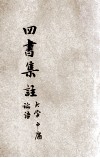 四書集註
大學中庸
論語